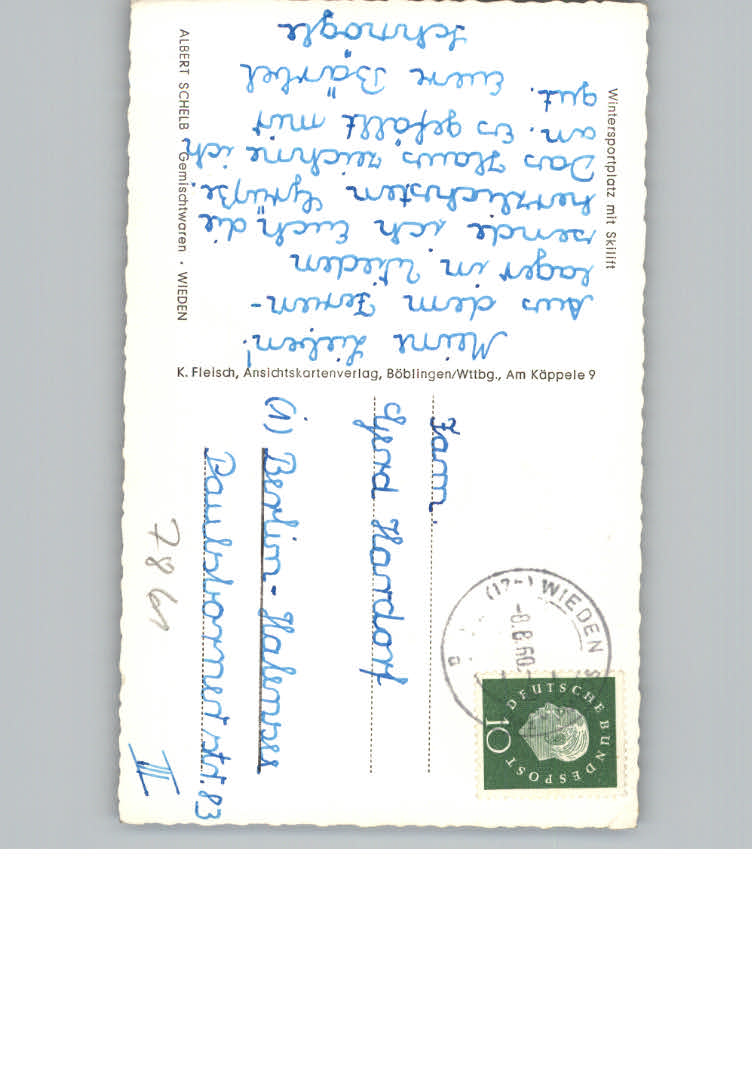 Wintersportplatz mit Skilift
Meine Lieben!
Aus dem Ferien-
lager in Wieden
sende ich Euch die
herzlichsten Grüße.
Das Haus zeichne ich
an. Es gefällt mir
gut. Euere Bärbel
Schmogle
ALBERT SCHELB · Gemischtwaren · WIEDEN
K. Fleisch, Ansichtskartenverlag, Böblingen/Wttbg., Am Käppele 9
(17-) WIEDEN
-8.8.60
DEUTSCHE BUNDESPOST
10
Fam.
Gerd Hardorf
(1) Berlin-Halensee
Paulsbornerstr. 83
III